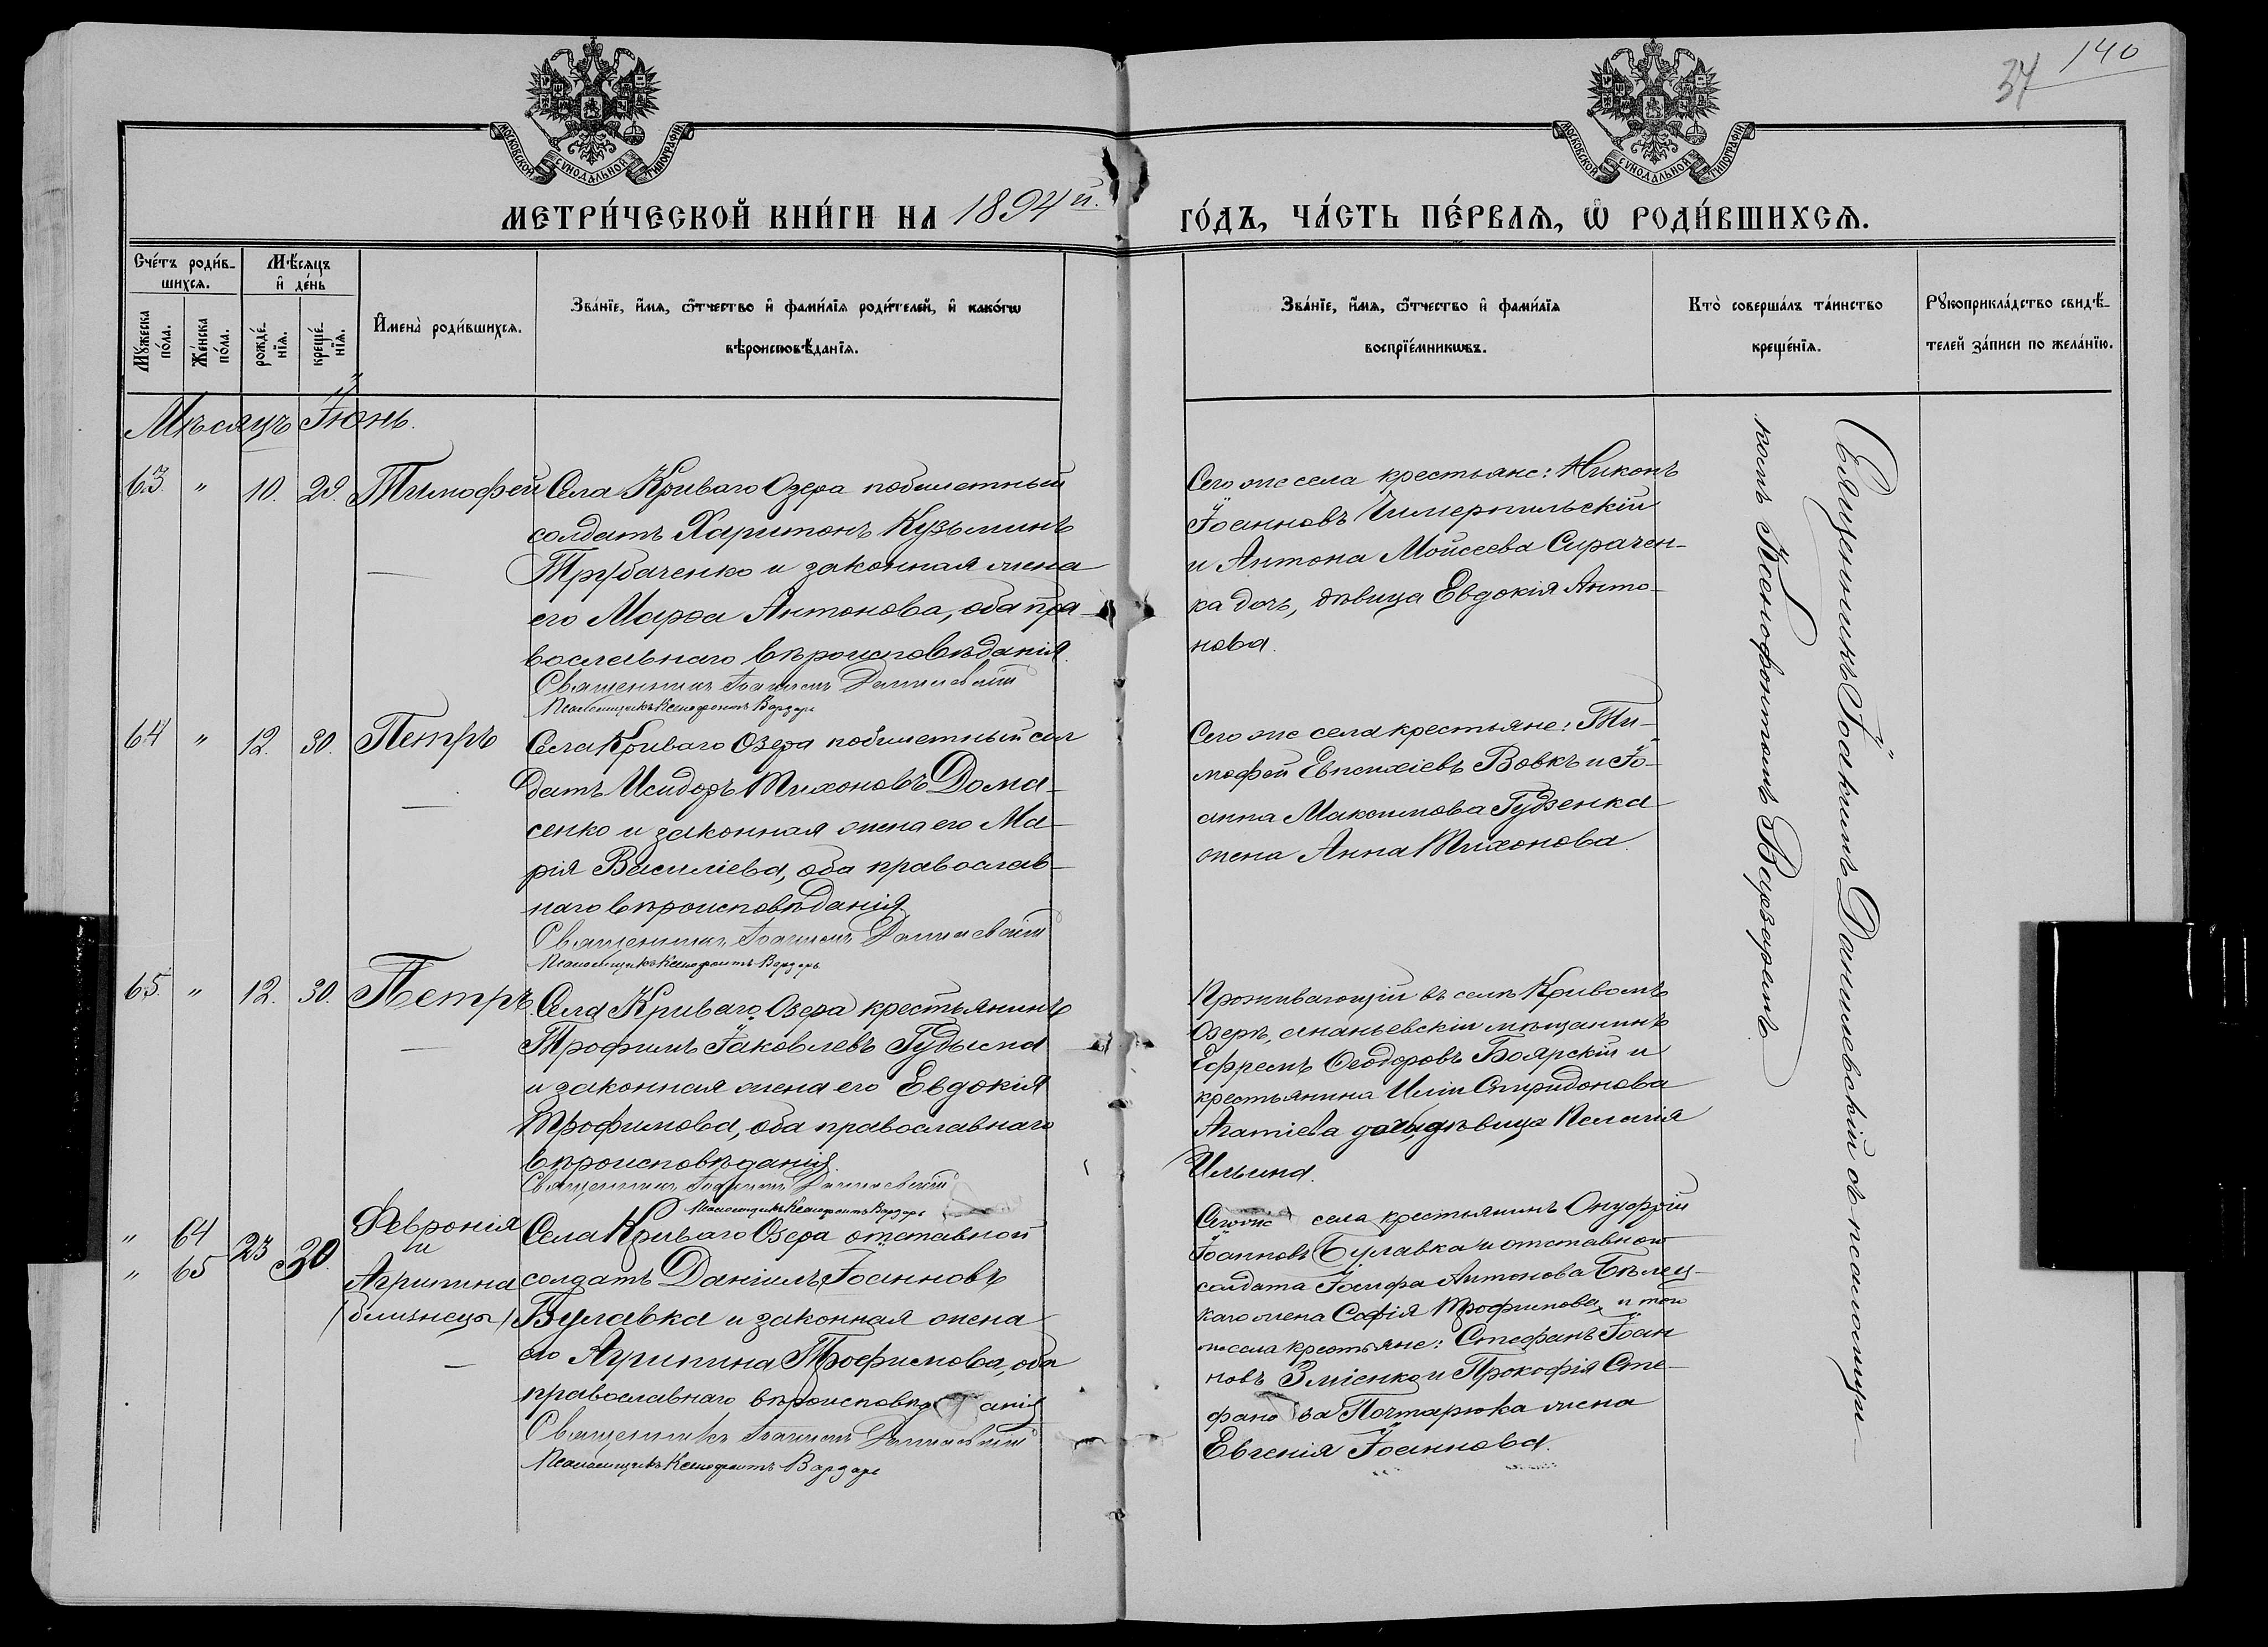 140
37
МОСКОВСКОЙ СѴНОДАЛЬНОЙ ТИПОГРАФІИ
МОСКОВСКОЙ СѴНОДАЛЬНОЙ ТИПОГРАФІИ
МЕТРИ́ЧЕСКОЙ КНИ́ГИ НА 1894 й.
ГО́ДЪ, ЧА́СТЬ ПЕ́РВАѦ, Ѡ РОДИ́ВШИХСѦ.
Сче́тъ роди́в-
шихсѧ.
Мꙋ́жеска
по́ла.
Же́нска
по́ла.
Мѣ́сѧцъ
и҆ де́нь
рожде́-
нїѧ.
креще́-
нїѧ.
И҆мена̀ роди́вшихсѧ.
Зва́нїе, и҆́мѧ, ѻ҆́тчество и҆ фами́лїѧ роди́телей, и҆ како́гѡ
вѣроисповѣ́данїѧ.
Зва́нїе, и҆́мѧ, ѻ҆́тчество и҆ фами́лїѧ
воспрїе́мникѡвъ.
Кто̀ соверша́лъ та́инство
креще́нїѧ.
Рꙋкоприкла́дство свидѣ́-
телей за́писи по жела́нїю.
Мѣсяцъ Іюнь.
63. " 10. 29. Тимофей
Села Криваго Озера побилетный
солдатъ Харитонъ Кузьминъ
Трубаченко и законная жена
его Марѳа Антонова, оба пра-
вославнаго вѣроисповѣданія.
Священникъ Іоакимъ Даниловскій
Псаломщикъ Ксенофонтъ Вардарь
Сего же села крестьяне: Никонъ
Іоанновъ Чимерпильскій
и Антона Мойсеева Сирачен-
ка дочь, дѣвица Евдокія Анто-
нова.
64 " 12. 30. Петръ
Села Криваго Озера побилетный сол
датъ Исидоръ Тихоновъ Дома-
сенко и законная жена его Ма-
рія Василіева, оба православ-
наго вѣроисповѣданія
Священникъ Іоакимъ Даниловскій
Псаломщикъ Ксенофонтъ Вардарь
Сего же села крестьяне: Ти-
мофей Евпсихіевъ Вовкъ и Іо-
анна Максимова Гудзенка
жена Анна Тихонова.
65. " 12. 30. Петръ
Села Криваго Озера крестьянинъ
Трофимъ Іаковлевъ Гудыма
и законная жена его Евдокія
Трофимова, оба православнаго
вѣроисповѣданія.
Священникъ Іоакимъ Даниловскій
Псаломщикъ Ксенофонтъ Вардарь
Проживающій въ селѣ Кривомъ
Озерѣ, ананьевскій мѣщанинъ
Ефремъ Ѳеодоровъ Боярскій и
крестьянина Иліи Спиридонова
Агатіева дочь, дѣвица Пелагія
Ильина.
" 64
" 65
23 30
Февронія
и
Агрипина
(близнецы)
Села Криваго Озера отставной
солдатъ Даніилъ Іоанновъ
Булавка и законная жена
его Агрипина Трофимова, оба
православнаго вѣроисповѣданія
Священникъ Іоакимъ Даниловскій
Псаломщикъ Ксенофонтъ Вардарь
Сего же села крестьянинъ Онуфрій
Іоанновъ Булавка и отставного
солдата Іосифа Антонова Бѣлец-
каго жена Софія Трофимова, и того
же села крестьяне: Стефанъ Іоан
новъ Зміенко и Прокофія Сте-
фанова Почтарюка жена
Евгенія Іоаннова.
Священникъ Іоакимъ Даниловскій съ псаломщи-
комъ Ксенофонтомъ Вардаремъ